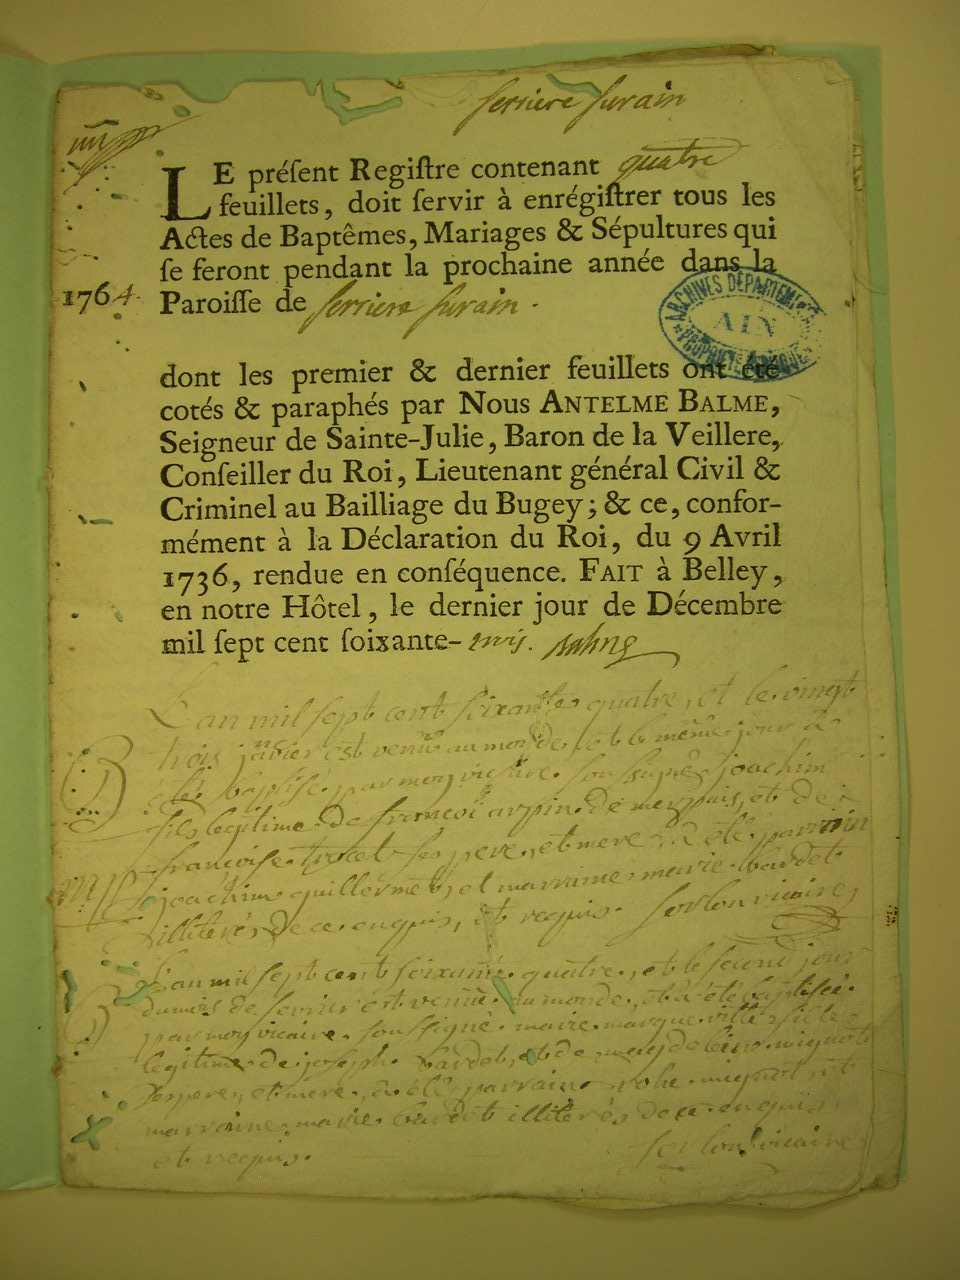 serriere surain
LE préſent Regiſtre contenant quatre
feuillets, doit ſervir à enrégiſtrer tous les
Actes de Baptêmes, Mariages & Sépultures qui
ſe feront pendant la prochaine année dans la
1764. Paroiſſe de serriere surain.
ARCHIVES DÉPARTEM
AIN
dont les premier & dernier feuillets ont été
cotés & paraphés par NOUS ANTELME BALME,
Seigneur de Sainte-Julie, Baron de la Veillere,
Conſeiller du Roi, Lieutenant général Civil &
Criminel au Bailliage du Bugey; & ce, confor-
mément à la Déclaration du Roi, du 9 Avril
1736, rendue en conſéquence. FAIT à Belley,
en notre Hôtel, le dernier jour de Décembre
mil ſept cent ſoixante-trois. Balme
L'an mil sept cent soixante quatre, et le vingt
trois janvier est venu au monde, et le même jour à
été baptisé par moy vicaire soussigné joachim
fils legitime de françoi arpin de et de
françoise ses pere, et mere, à été parrain
joachim guillermet, et marraine marie bardet
illiterés de ce enquis, et requis. vicaire
L'an mil sept cent soixante quatre, et le second jour
du mois de fevrier est venüe au monde, et à été baptisée
par moy vicaire soussigné marie fille
legitime de joseph bardet, et de mignot
ses pere, et mere, à été parrain mignot, et
marraine marie bardet illiterés de ce enquis
et requis. vicaire